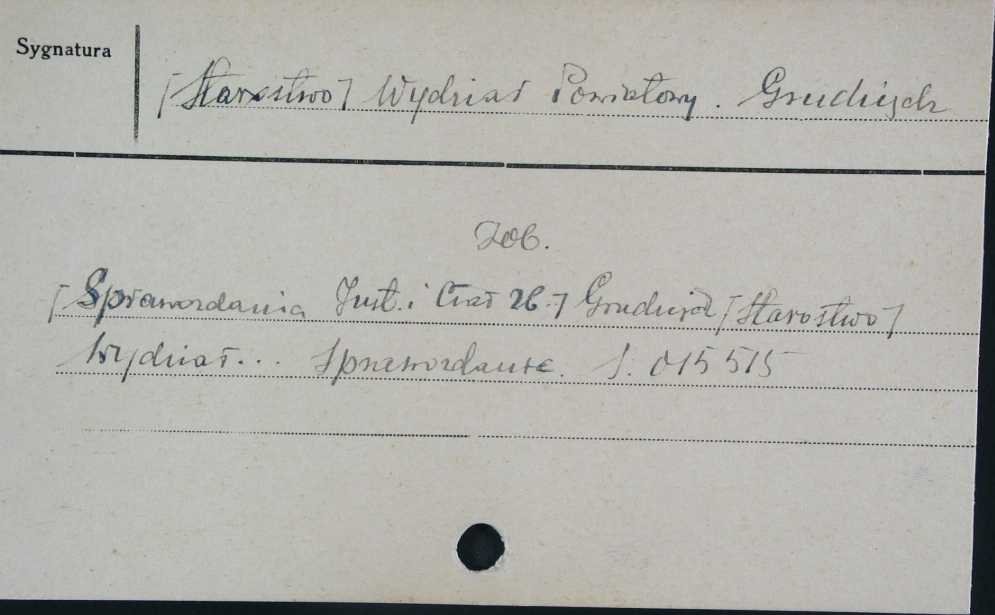 Sygnatura
[Starostwo] Wydział Powiatowy. Grudziądz
Zob.
[Sprawozdania Inst. i Ciał 26.] Grudziądz [Starostwo]
Wydział... Sprawozdanie. S. 015 515